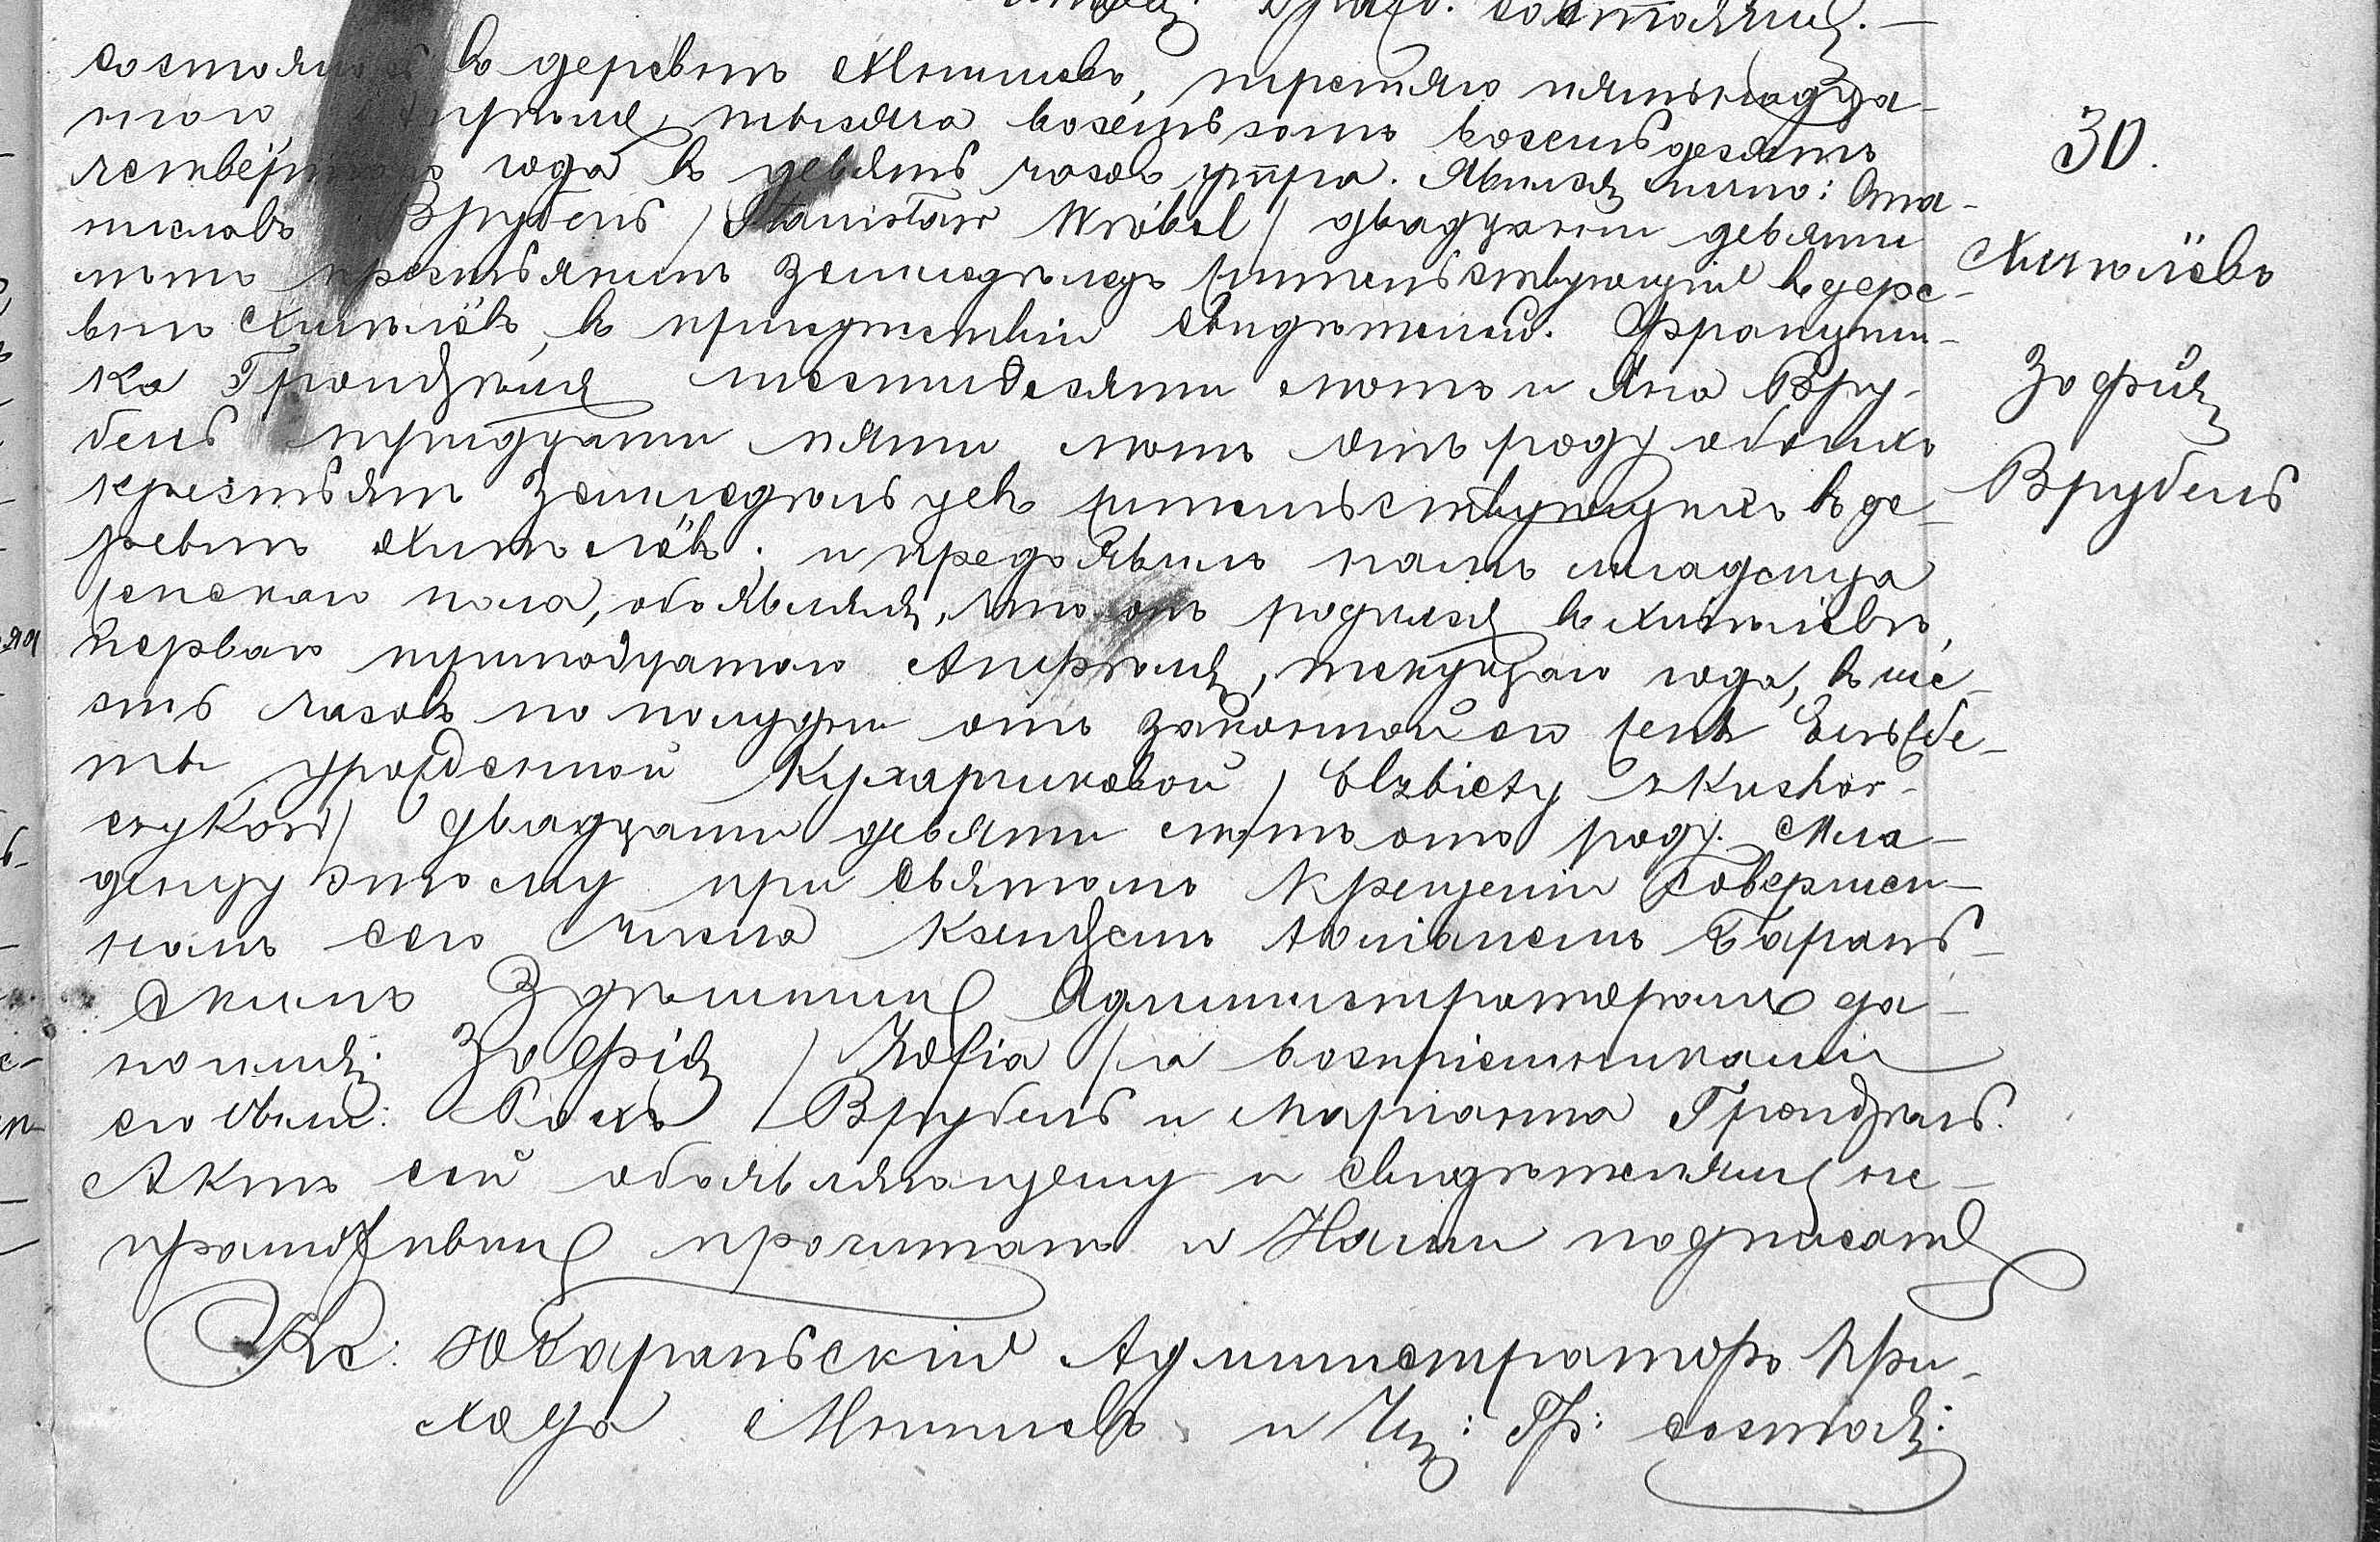 состоялось въ деревнѣ Мнишевъ, третяго пятьнадца-
таго Апрѣля, тысяча восемьсотъ восемьдесятъ
четвёртаго года въ девять часовъ утра. Явился лично: Ста-
ниславъ Врубель / Stanisław Wróbel / двадцати девяти
лѣтъ крестьянинъ земледѣлецъ жительствующій въ дере-
внѣ Хмѣлёвъ, въ присутствіи свидѣтелей. Франциш-
ка Грондзѣля шестидесяти лѣтъ и Яна Вру-
бель тридцати пяти лѣтъ отъ роду обоихъ
крестьянъ земледѣльцевъ жительствующихъ въ де-
ревнѣ Хмѣлёвъ; и предъявилъ намъ младенца
женскаго пола, объявляя, что онъ родился въ Хмѣлёвѣ,
перваго тринадцатаго Апрѣля, текущаго года, въ ше-
сть часовъ по полудни отъ законной его жены Ельжбе-
ты урожденной Кухарчиковой / Elzbiety z Kuchar-
czyków / двадцати девяти лѣтъ отъ роду. Мла-
денцу этому при Святомъ Крещеніи совершен-
номъ сего числа Ксендзомъ Бараньс-
кимъ Здѣшнимъ Администраторомъ да-
но имя: Зофія / Zofia / а воспріемниками
его были: Рохъ Врубель и Маріанна Грондзѣль.
Актъ сей объявляющему и свидѣтелямъ не-
грамотнымъ прочитанъ и Нами подписанъ
Кс: Бараньскій Администраторъ При-
хода Мнишевъ и Чи: Гр: состоя:
30.
Хмѣлёвъ
Зофія
Врубель